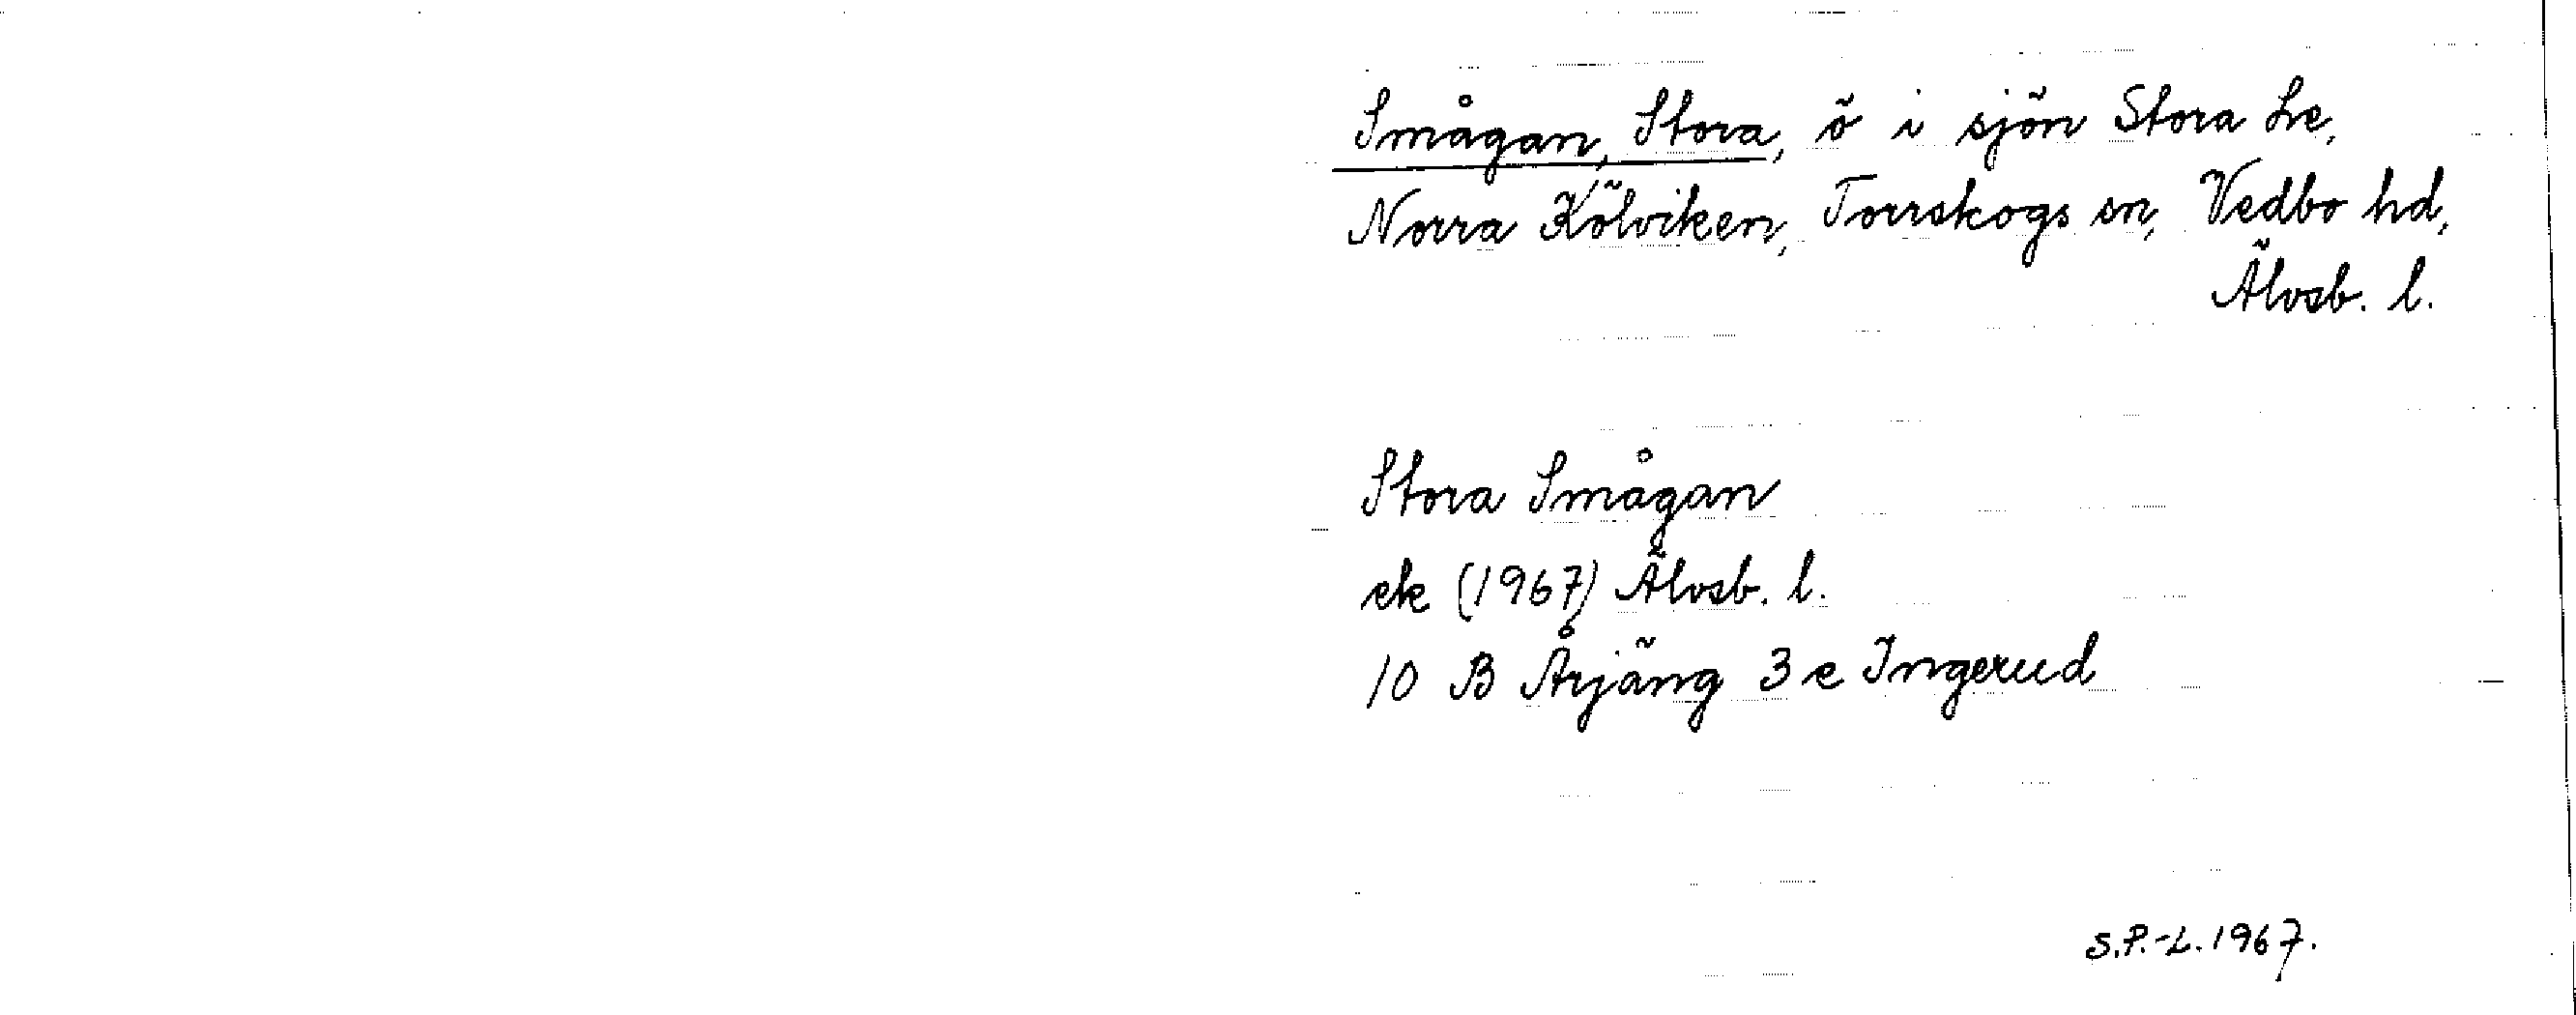 Smågan, Stora, ö i sjön Stora Le,
Norra Kölviken, Torrskogs sn, Vedbo hd,
Älvsb. l.
Stora Smågan
ek (1967) Älvsb. l.
10 B Årjäng 3 e Ingerud
S.P.-L. 1967.